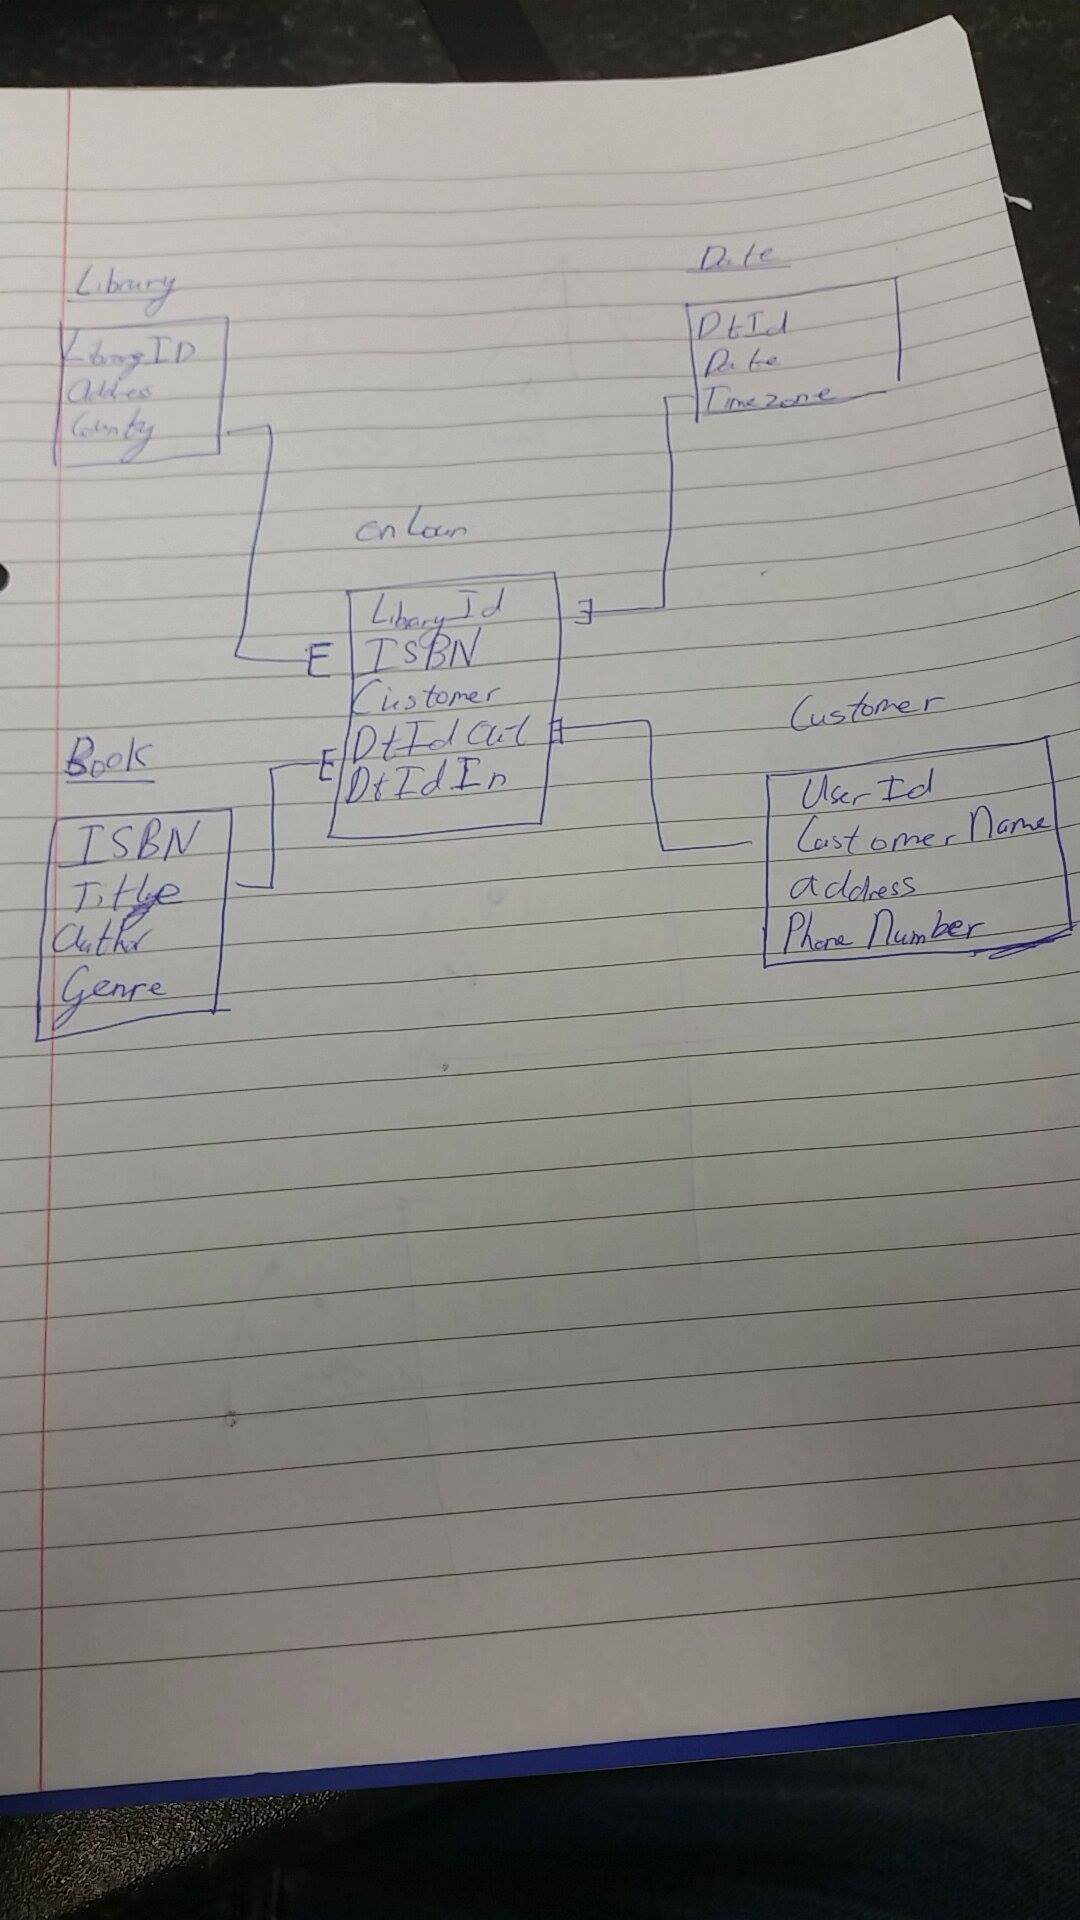 Library
LibraryID
Address
County
Date
DtId
Date
Timezone
onLoan
LibaryId
ISBN
Customer
DtIdOut
DtIdIn
Book
ISBN
Title
Author
Genre
Customer
UserId
CustomerName
address
Phone Number